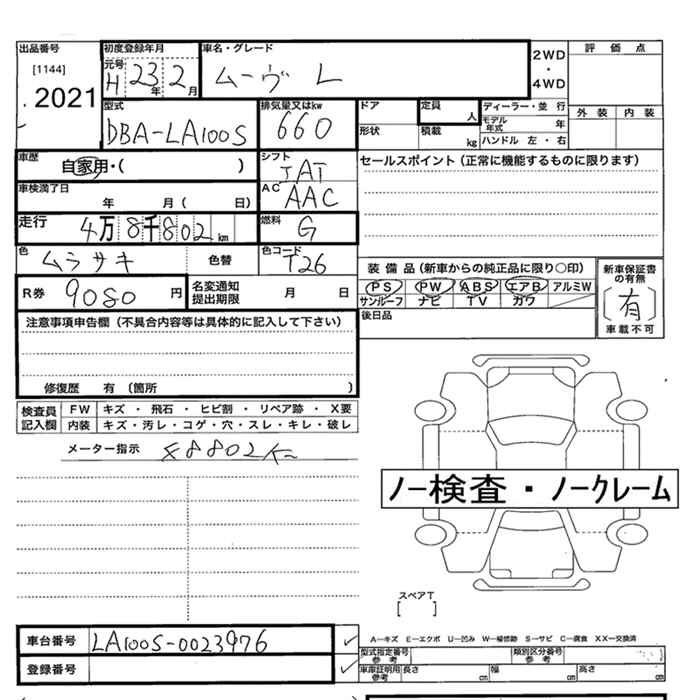 出品番号 初度登録年月 車名・グレード 2WD・4WD 評価点
[1144] 元号 H 23年 2月 ムーヴ L
2021
型式 DBA-LA100S 排気量又はkw 660 ドア 定員 人 ディーラー・並行 外装 内装
形状 積載 kg モデル年式 年
ハンドル 左・右
車歴 自家用・( ) シフト IAT セールスポイント (正常に機能するものに限ります)
車検満了日 年 月( 日) AC AAC
走行 4万8千802km 燃料 G
色 ムラサキ 色替 色コード T26
装備品 (新車からの純正品に限り○印) 新車保証書の有無
R券 9080円 名変通知提出期限 月 日 PS PW ABS エアB アルミW (有)
サンルーフ ナビ TV カワ 車載不可
注意事項申告欄 (不具合内容等は具体的に記入して下さい) 後日品
修復歴 有 (箇所 )
検査員記入欄 FW キズ・飛石・ヒビ割・リペア跡・X要
内装 キズ・汚レ・コゲ・穴・スレ・キレ・破レ
メーター指示 48802K
ノー検査・ノークレーム
スペアT
[ ]
車台番号 LA100S-0023976
A―キズ E―エクボ U―凹み W―補修跡 S―サビ C―腐食 XX―交換済
型式指定番号 参考 類別区分番号 参考
登録番号 車庫証明用 参考 長さ cm 幅 cm 高さ cm